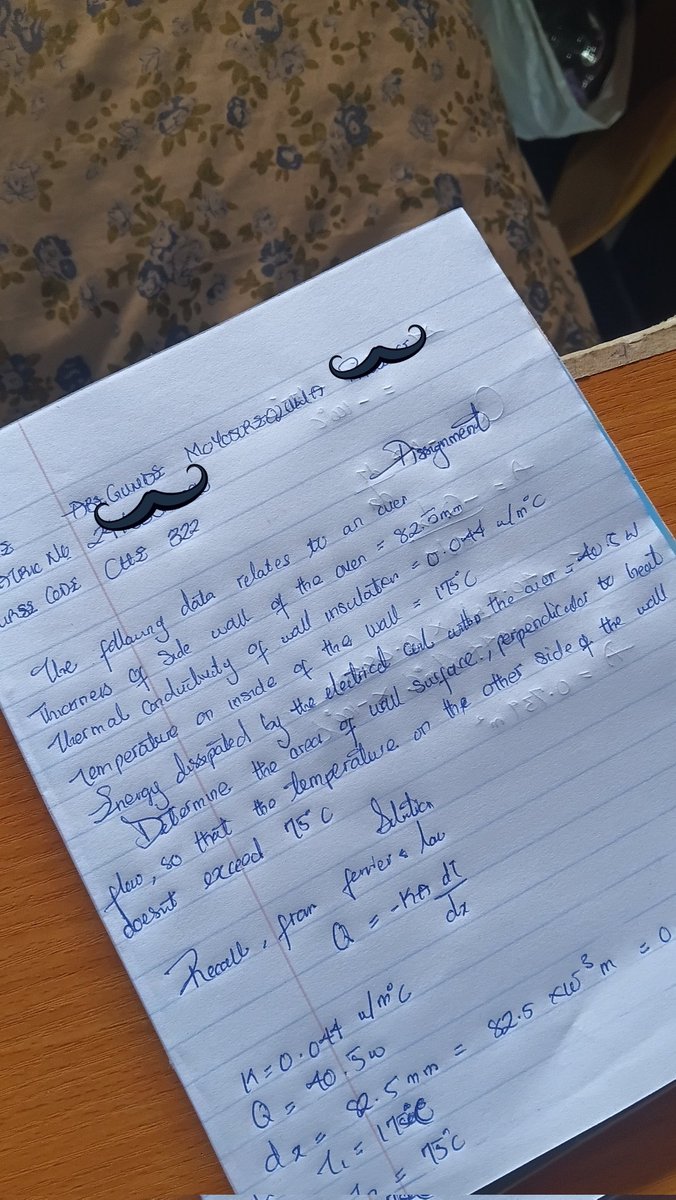 Assignment
CHE 322
The following data relates to an oven
Thickness of side wall of the oven = 82.5mm
Thermal conductivity of wall insulation = 0.044 w/m°C
Temperature on inside of the wall = 175°C
Energy dissipated by the electrical coil within the oven = 40.5W
Determine the area of wall surface, perpendicular to heat
flow, so that the temperature on the other side of the wall
doesn't exceed 75°C
Solution
Recall, from law
Q = -KA dT
dx
K = 0.044 w/m°C
Q = 40.5w
dx = 82.5mm = 82.5 x10⁻³ m = 0
T₁ = 175°C
= 75°C